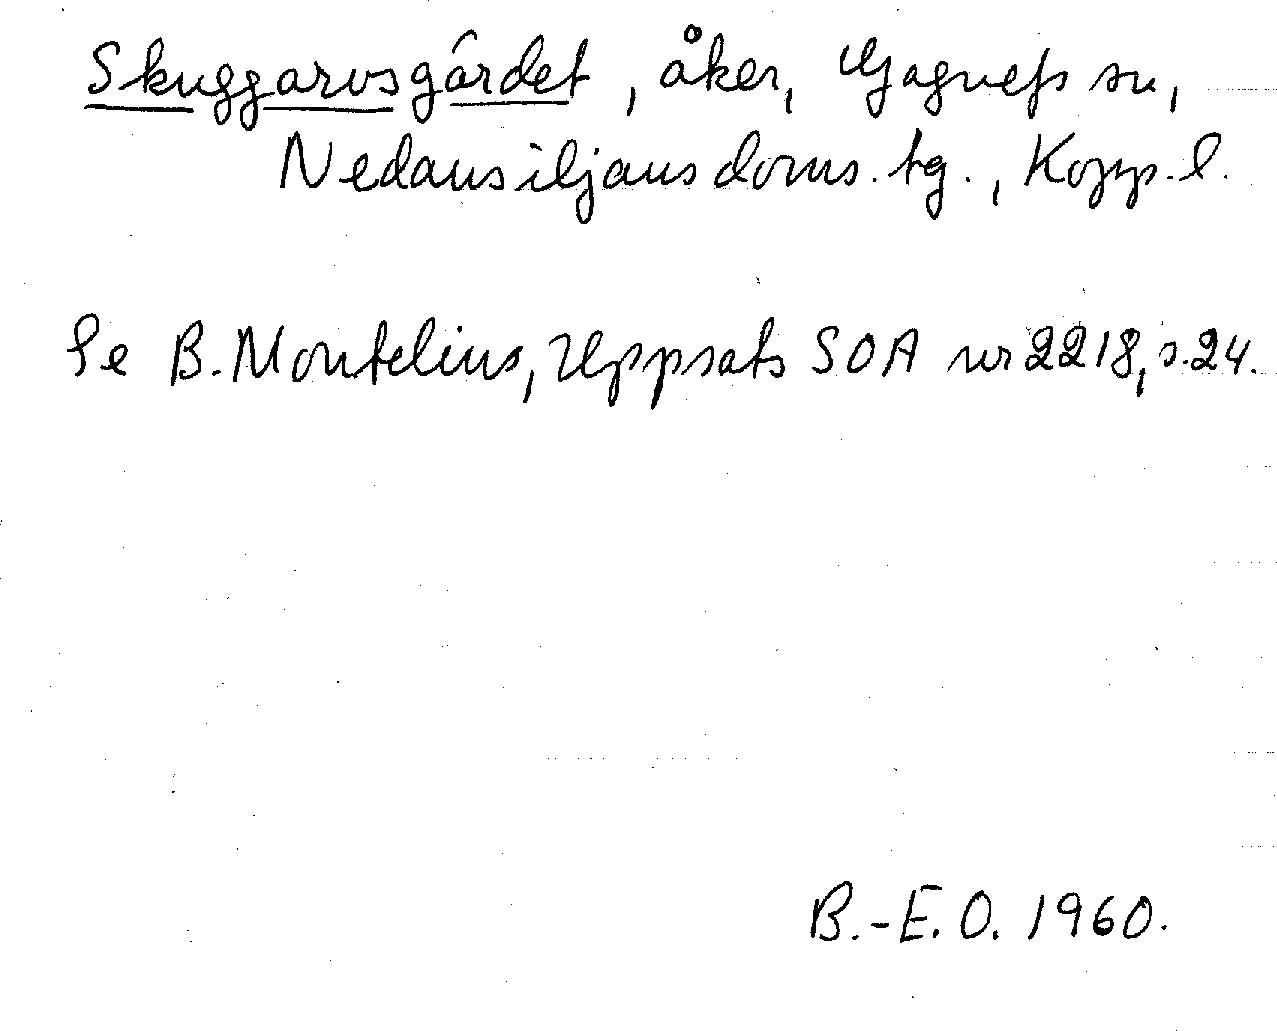 Skuggarvsgärdet, åker, Gagnefs sn,
Nedansiljans doms. tg., Kopp. l.
Se B. Montelius, Uppsats SOA nr 2218, s. 24.
B.-E.O. 1960.